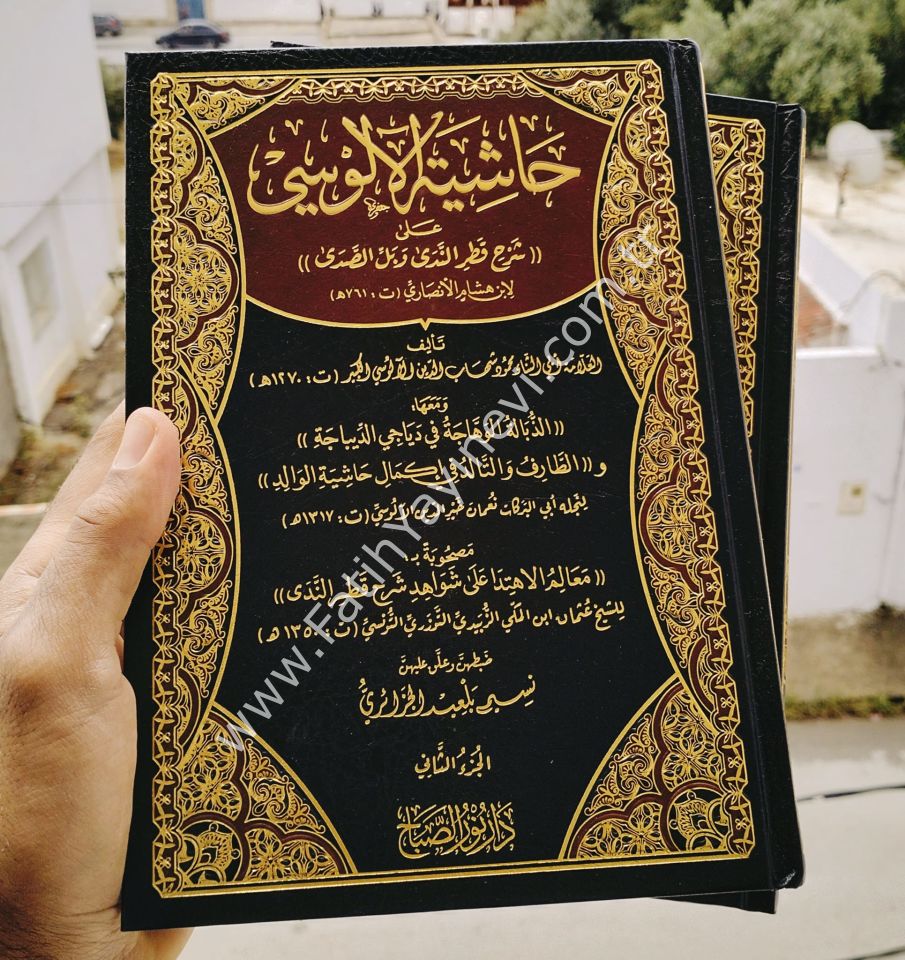 حَاشِيَة الآلُوْسِيّ
عَلَى
(( شَرْح قَطْرِ النَّدَىٰ وَبَلِّ الصَّدَىٰ ))
لِابْنِ هشَام الأَنصَارِيّ (ت : ٧٦١هـ)
تَأليف
العَلّامة أبي الثناء محمُود شهَاب الدين الآلوسي الكبير (ت : ١٢٧٠هـ)
وَمَعَهَا:
(( الذُّبَالَةُ الوَهَّاجَةُ في دَيَاجِي الدِّيبَاجَة ))
و (( الطَّارِفُ وَالتَّالِدُ في إكمَالِ حَاشِيَةِ الوَالِدِ ))
لِنَجْلِه أَبي البَرَكَات نعْمَان خَير الدين الآلوسيّ (ت : ١٣١٧هـ)
مَصحُوبَةً بـ :
(( مَعَالِم الاهتِدَا عَلَى شَوَاهِدِ شَرْحِ قَطْرِ النَّدَى ))
لِلشيخ عُثمَان ابن المكّي الزَّبِيديّ التَّوْزَرِيّ التُّونُسِيّ (ت : ١٣٥٠هـ)
ضَبطهنّ وعلّق عليهنّ
نسيم بَلْعِيد الجَزَائريُّ
الجُزءُ الثَّاني
دَار نُور الصَّبَاح
www.FatihYayinevi.com.tr